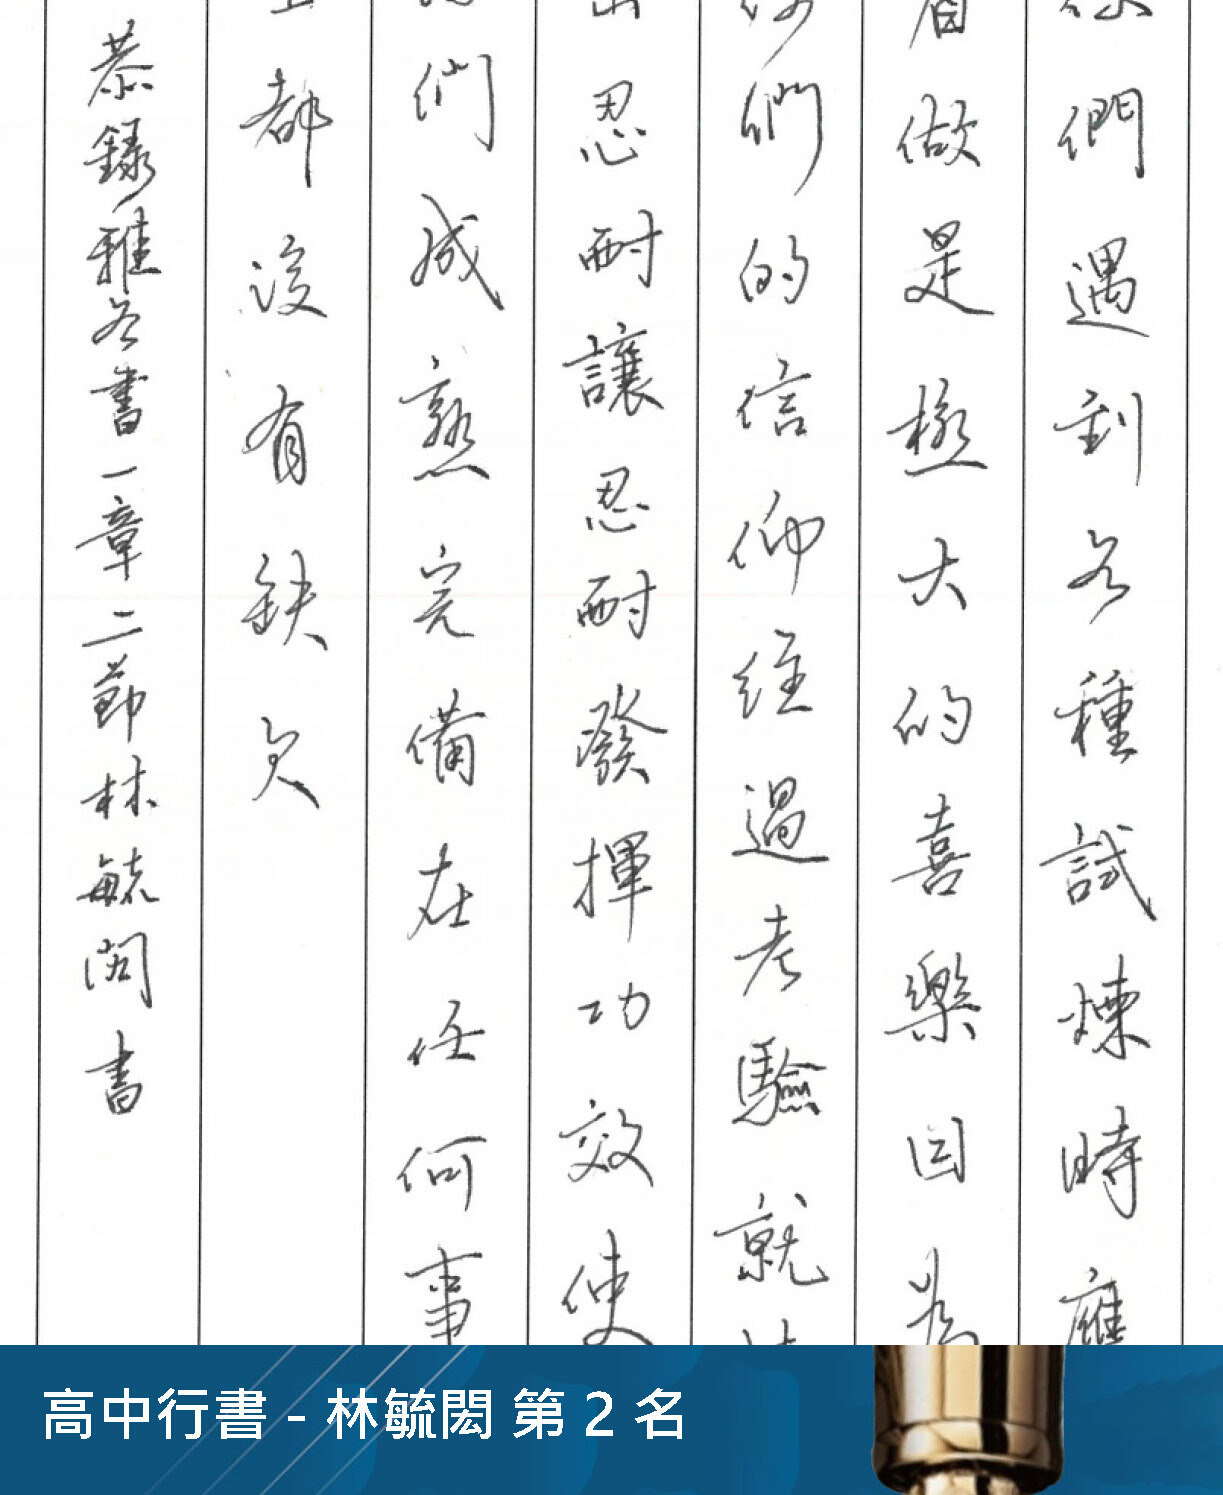 你們遇到各種試煉時應
看做是極大的喜樂因為
你們的信仰經過考驗就
出忍耐讓忍耐發揮功效使
你們成熟完備在任何事
上都沒有缺欠
恭錄雅各書一章二節林毓閎書
高中行書 - 林毓閎 第 2 名